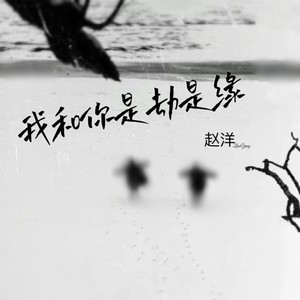 我和你是劫是缘
赵洋